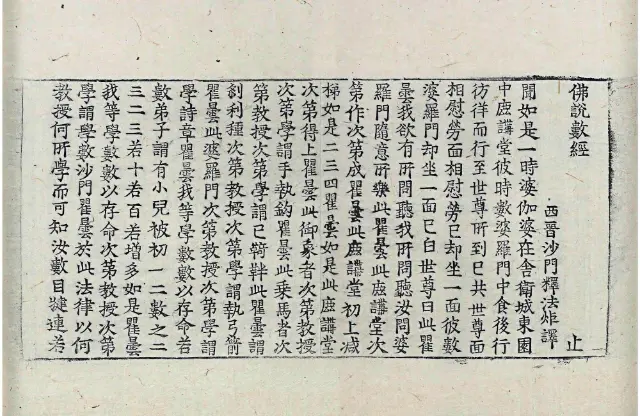 佛說數經 止
西晉沙門釋法炬譯
聞如是一時婆伽婆在舍衛城東園
中鹿講堂彼時數婆羅門中食後行
彷徉而行至世尊所到已共世尊面
相慰勞面相慰勞已却坐一面彼數
婆羅門却坐一面已白世尊曰此瞿
曇我欲有所問聽我所問聽汝問婆
羅門隨意所樂此瞿曇此鹿講堂次
第作次第成瞿曇此鹿講堂初上減
梯如是二三四瞿曇如是此鹿講堂
次第得上瞿曇此御象者次第教授
次第學謂手執鈎瞿曇此乘馬者次
第教授次第學謂已靽此瞿曇謂
刹利種次第教授次第學謂執弓箭
瞿曇此婆羅門次第教授次第學謂
學詩章瞿曇我等學數數以存命若
數弟子謂有小兒彼初一二數之二
三二三若十若百若增多如是瞿曇
我等學數數以存命次第教授次第
學謂學數沙門瞿曇於此法律以何
教授何所學而可知汝數目揵連若